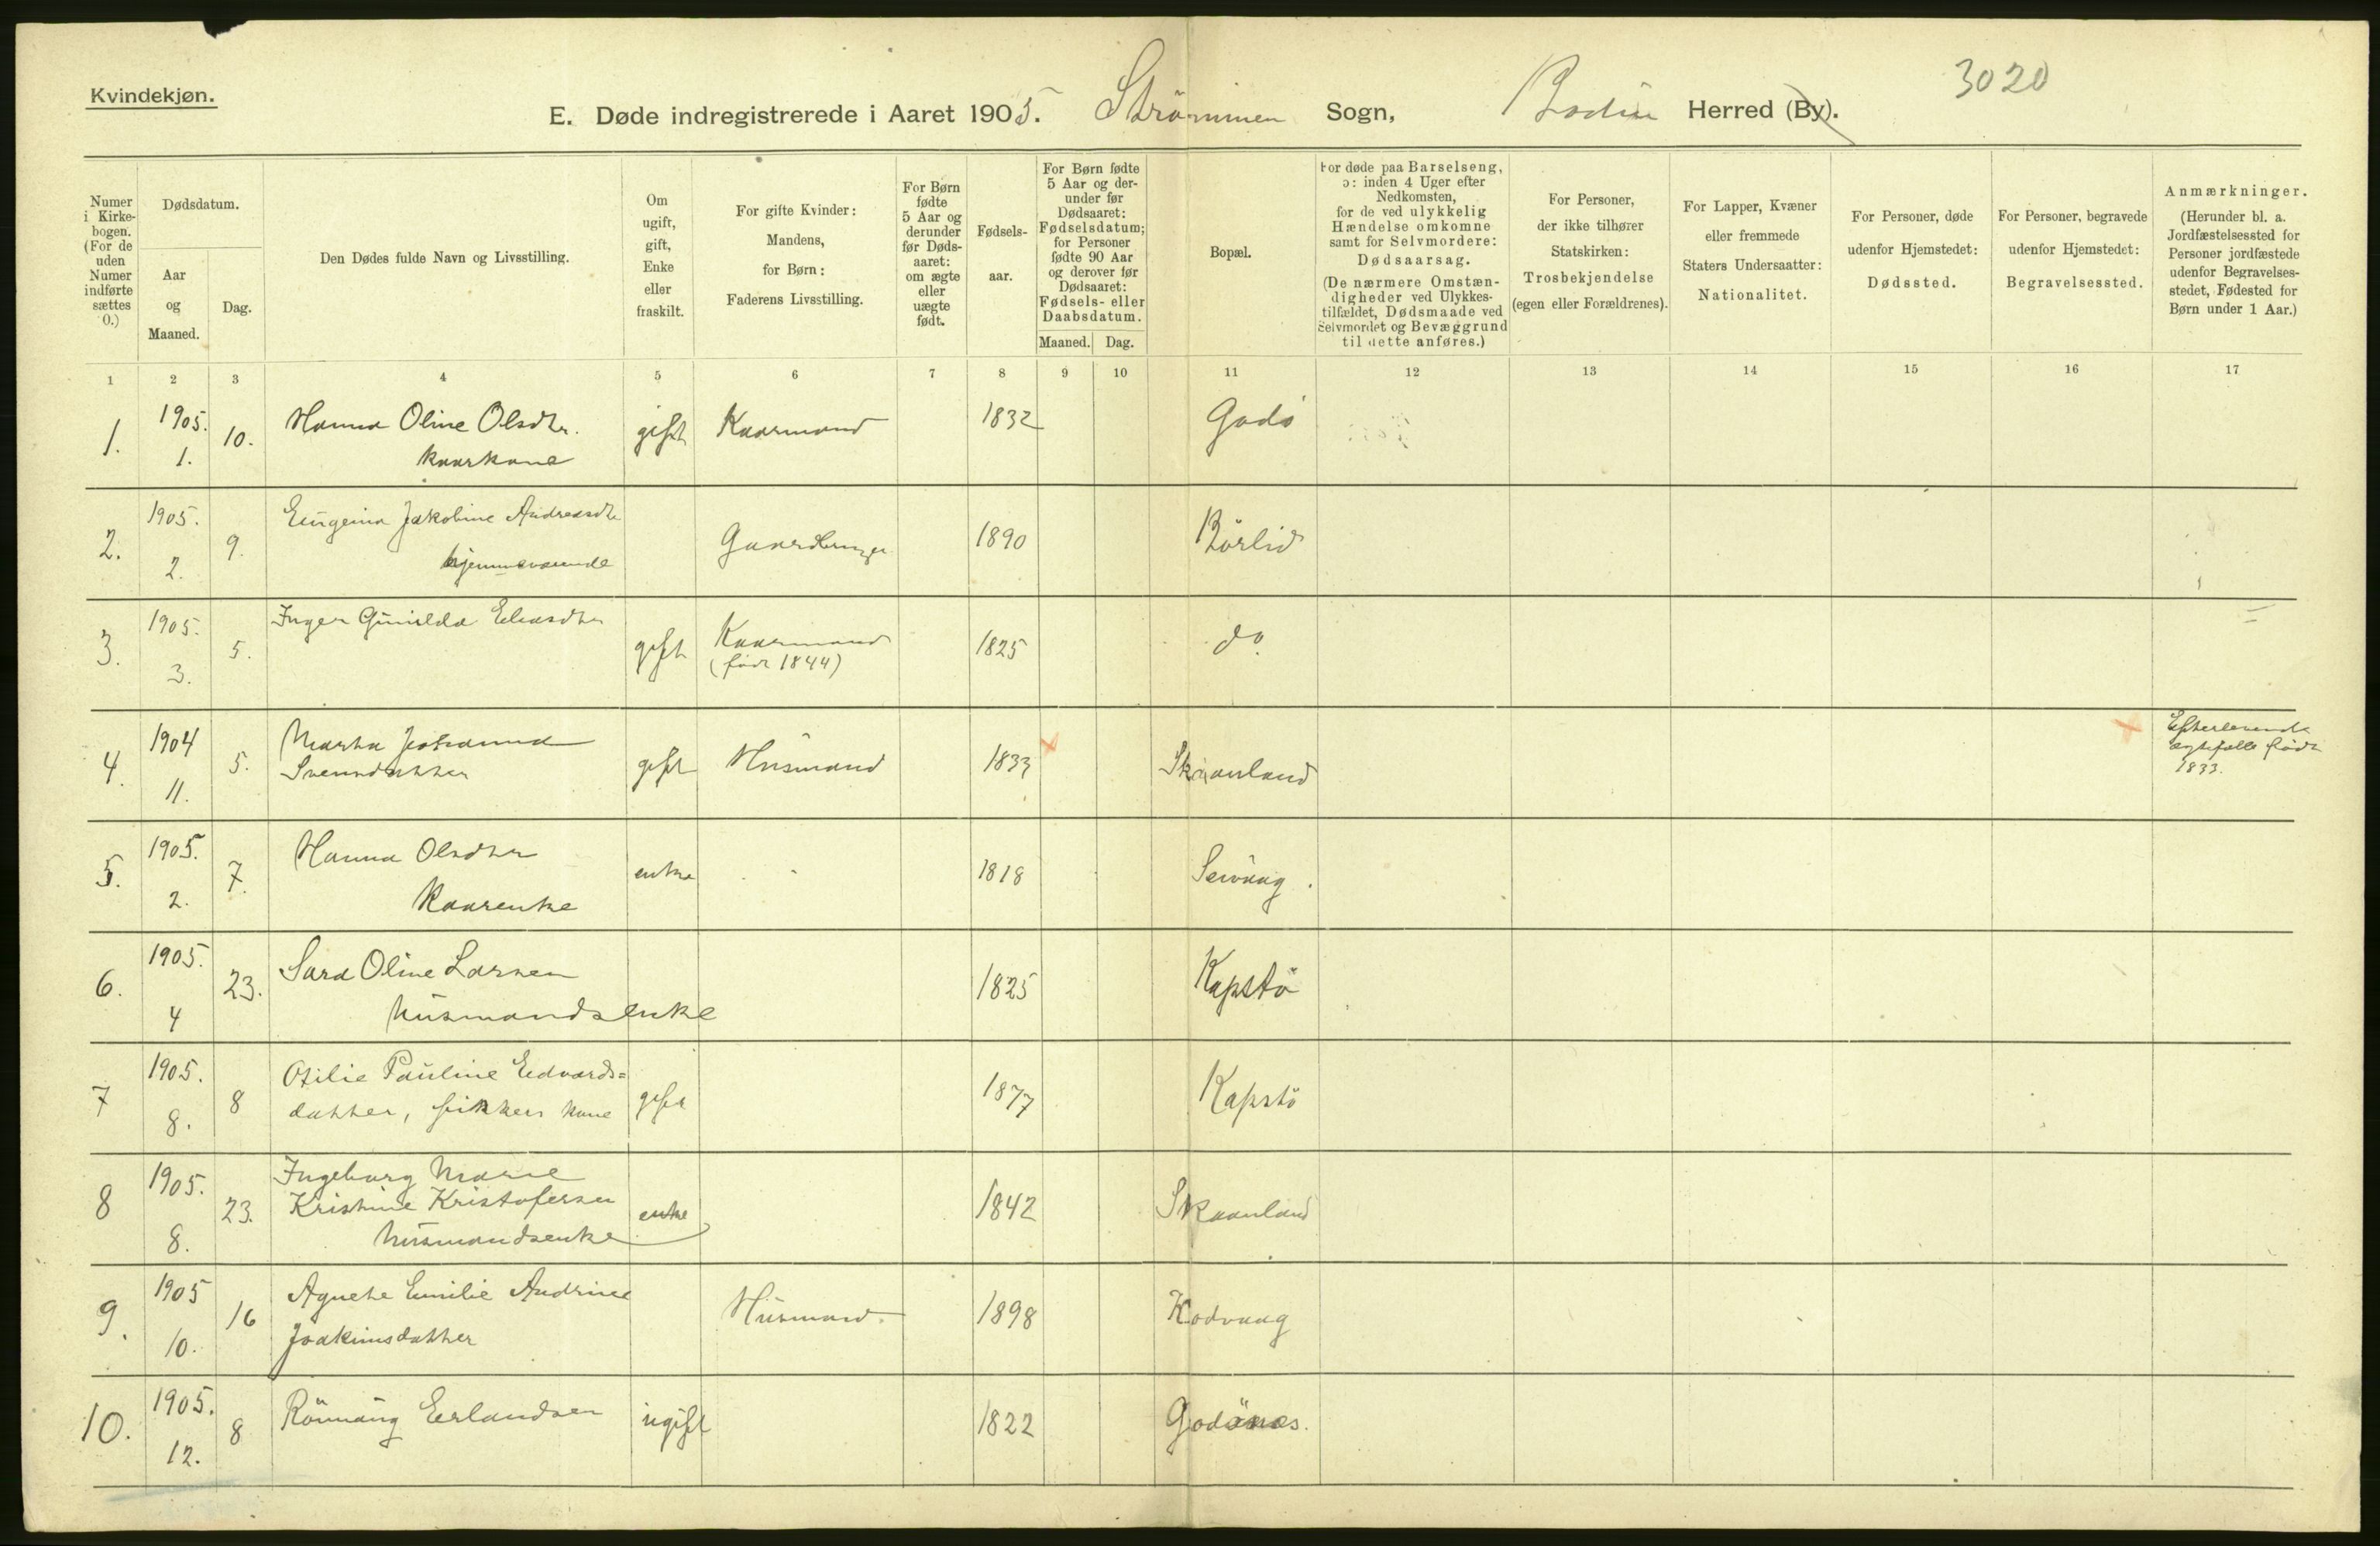 3020
Kvindekjøn.
E. Døde indregistrerede i Aaret 1905. Strömmen Sogn, Bodin Herred (By).
Numer i Kirke-bogen. (For de uden Numer indførte sættes 0.)
Dødsdatum.
Aar og Maaned.
Dag.
Den Dødes fulde Navn og Livsstilling.
Om ugift, gift, Enke eller fraskilt.
For gifte Kvinder: Mandens, for Børn: Faderens Livsstilling.
For Børn fødte 5 Aar og derunder før Døds-aaret: om ægte eller uægte født.
Fødsels-aar.
For Børn fødte 5 Aar og der-under før Dødsaaret: Fødselsdatum; for Personer fødte 90 Aar og derover før Dødsaaret: Fødsels- eller Daabsdatum.
Maaned. Dag.
Bopæl.
For døde paa Barselseng, ɔ: inden 4 Uger efter Nedkomsten, for de ved ulykkelig Hændelse omkomne samt for Selvmordere: Dødsaarsag.
(De nærmere Omstæn-digheder ved Ulykkes-tilfældet, Dødsmaade ved Selvmordet og Bevæggrund til dette anføres.)
For Personer, der ikke tilhører Statskirken: Trosbekjendelse (egen eller Forældrenes).
For Lapper, Kvæner eller fremmede Staters Undersaatter: Nationalitet.
For Personer, døde udenfor Hjemstedet: Dødssted.
For Personer, begravede udenfor Hjemstedet: Begravelsessted.
Anmærkninger.
(Herunder bl. a. Jordfæstelsessted for Personer jordfæstede udenfor Begravelses-stedet, Fødested for Børn under 1 Aar.)
1 2 3 4 5 6 7 8 9 10 11 12 13 14 15 16 17
1. 1905. 1. 10. Hanna Oline Olsdtr. gift Kaarmand 1832 Godö
kaarkone
2. 1905. 2. 9. Eugenia Jakobine Andreasdtr Gaardbruger 1890 Börlid
hjemmeværende
3. 1905. 3. 5. Inger Gunilda Eliasdtr gift Kaarmand 1825 do
(född 1844)
4. 1904 11. 5. Marta Johanna gift Husmand 1833 Skaanland Efterlevende
Svensdatter ægtefælle född
1833.
5. 1905. 2. 7. Hanna Olsdtr enke 1818 Seivaag.
Kaarenke
6. 1905. 4 23. Sara Oline Larsen 1825 Kapstö
Husmandsenke
7 1905. 8. 8 Otilie Pauline Edvards= gift 1877 Kapstö
datter, fiskers kone
8 1905. 8. 23. Ingeborg Marie enke 1842 Skaanland
Kristine Kristofersen
Husmandsenke
9. 1905 10. 16 Agnete Emilie Andrine Husmand. 1898 Kodvaag
Joakimsdatter
10. 1905. 12. 8 Rönnaug Erlandsen ugift 1822 Godönes.